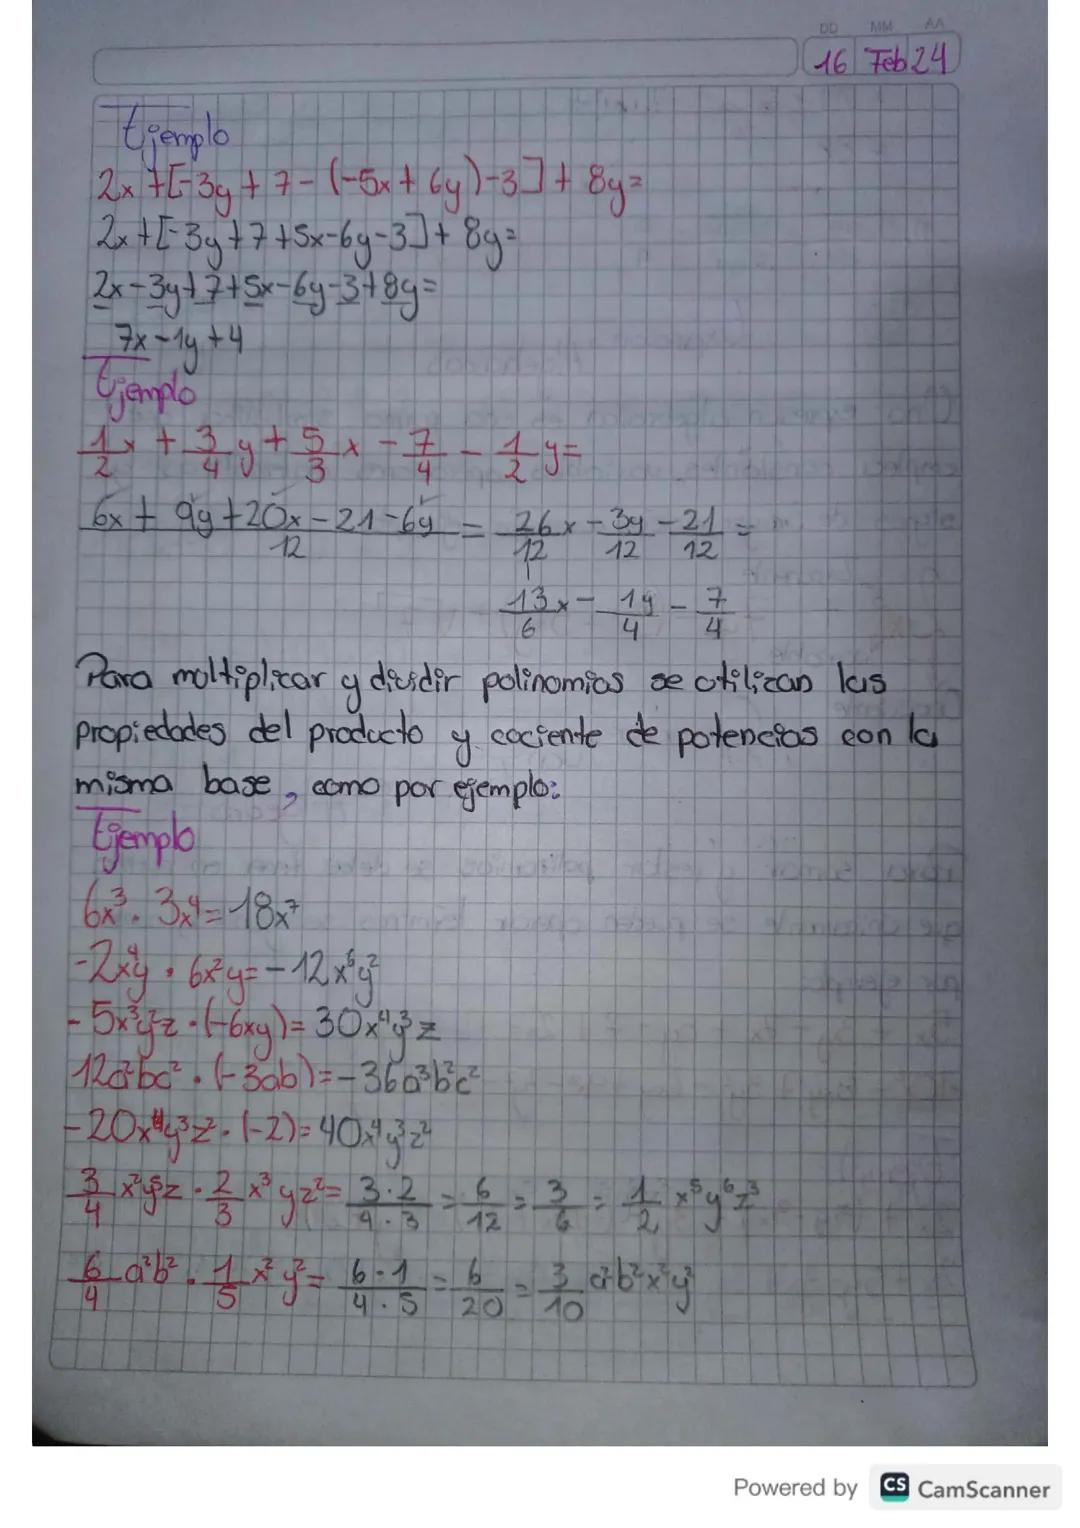 DD MM AA
16 Feb 24
Ejemplo
2x+[-3y+7-(-5x+6y)-3]+8y=
2x+[-3y+7+5x-6y-3]+8y=
2x-3y+7+5x-6y-3+8y=
7x-1y+4
Ejemplo
1/2 x + 3/4 y + 5/3 x - 7/4 - 1/2 y=
6x+9y+20x-21-6y/12 = 26/12 x - 3y/12 - 21/12 =
13/6 x - 1y/4 - 7/4
Para moltiplicar y dividir polinomios se utilizan las
propiedades del producto y cociente de potencias con la
misma base, como por ejemplo:
Ejemplo
6x³ · 3x⁴=18x⁷
-2x⁴y · 6x²y=-12x⁶y²
-5x³y²z·(-6xy)=30x⁴y³z
12a²bc² · (-3ab)=-36a³b²c²
-20x⁴y³z²·(-2)=40x⁴y³z²
3/4 x²y⁵z · 2/3 x³yz²= 3·2/4·3 = 6/12 = 3/6 = 1/2 x⁵y⁶z³
6/4 a²b² · 1/5 x²y²= 6·1/4·5 = 6/20 = 3/10 a²b²x²y²
Powered by CS CamScanner